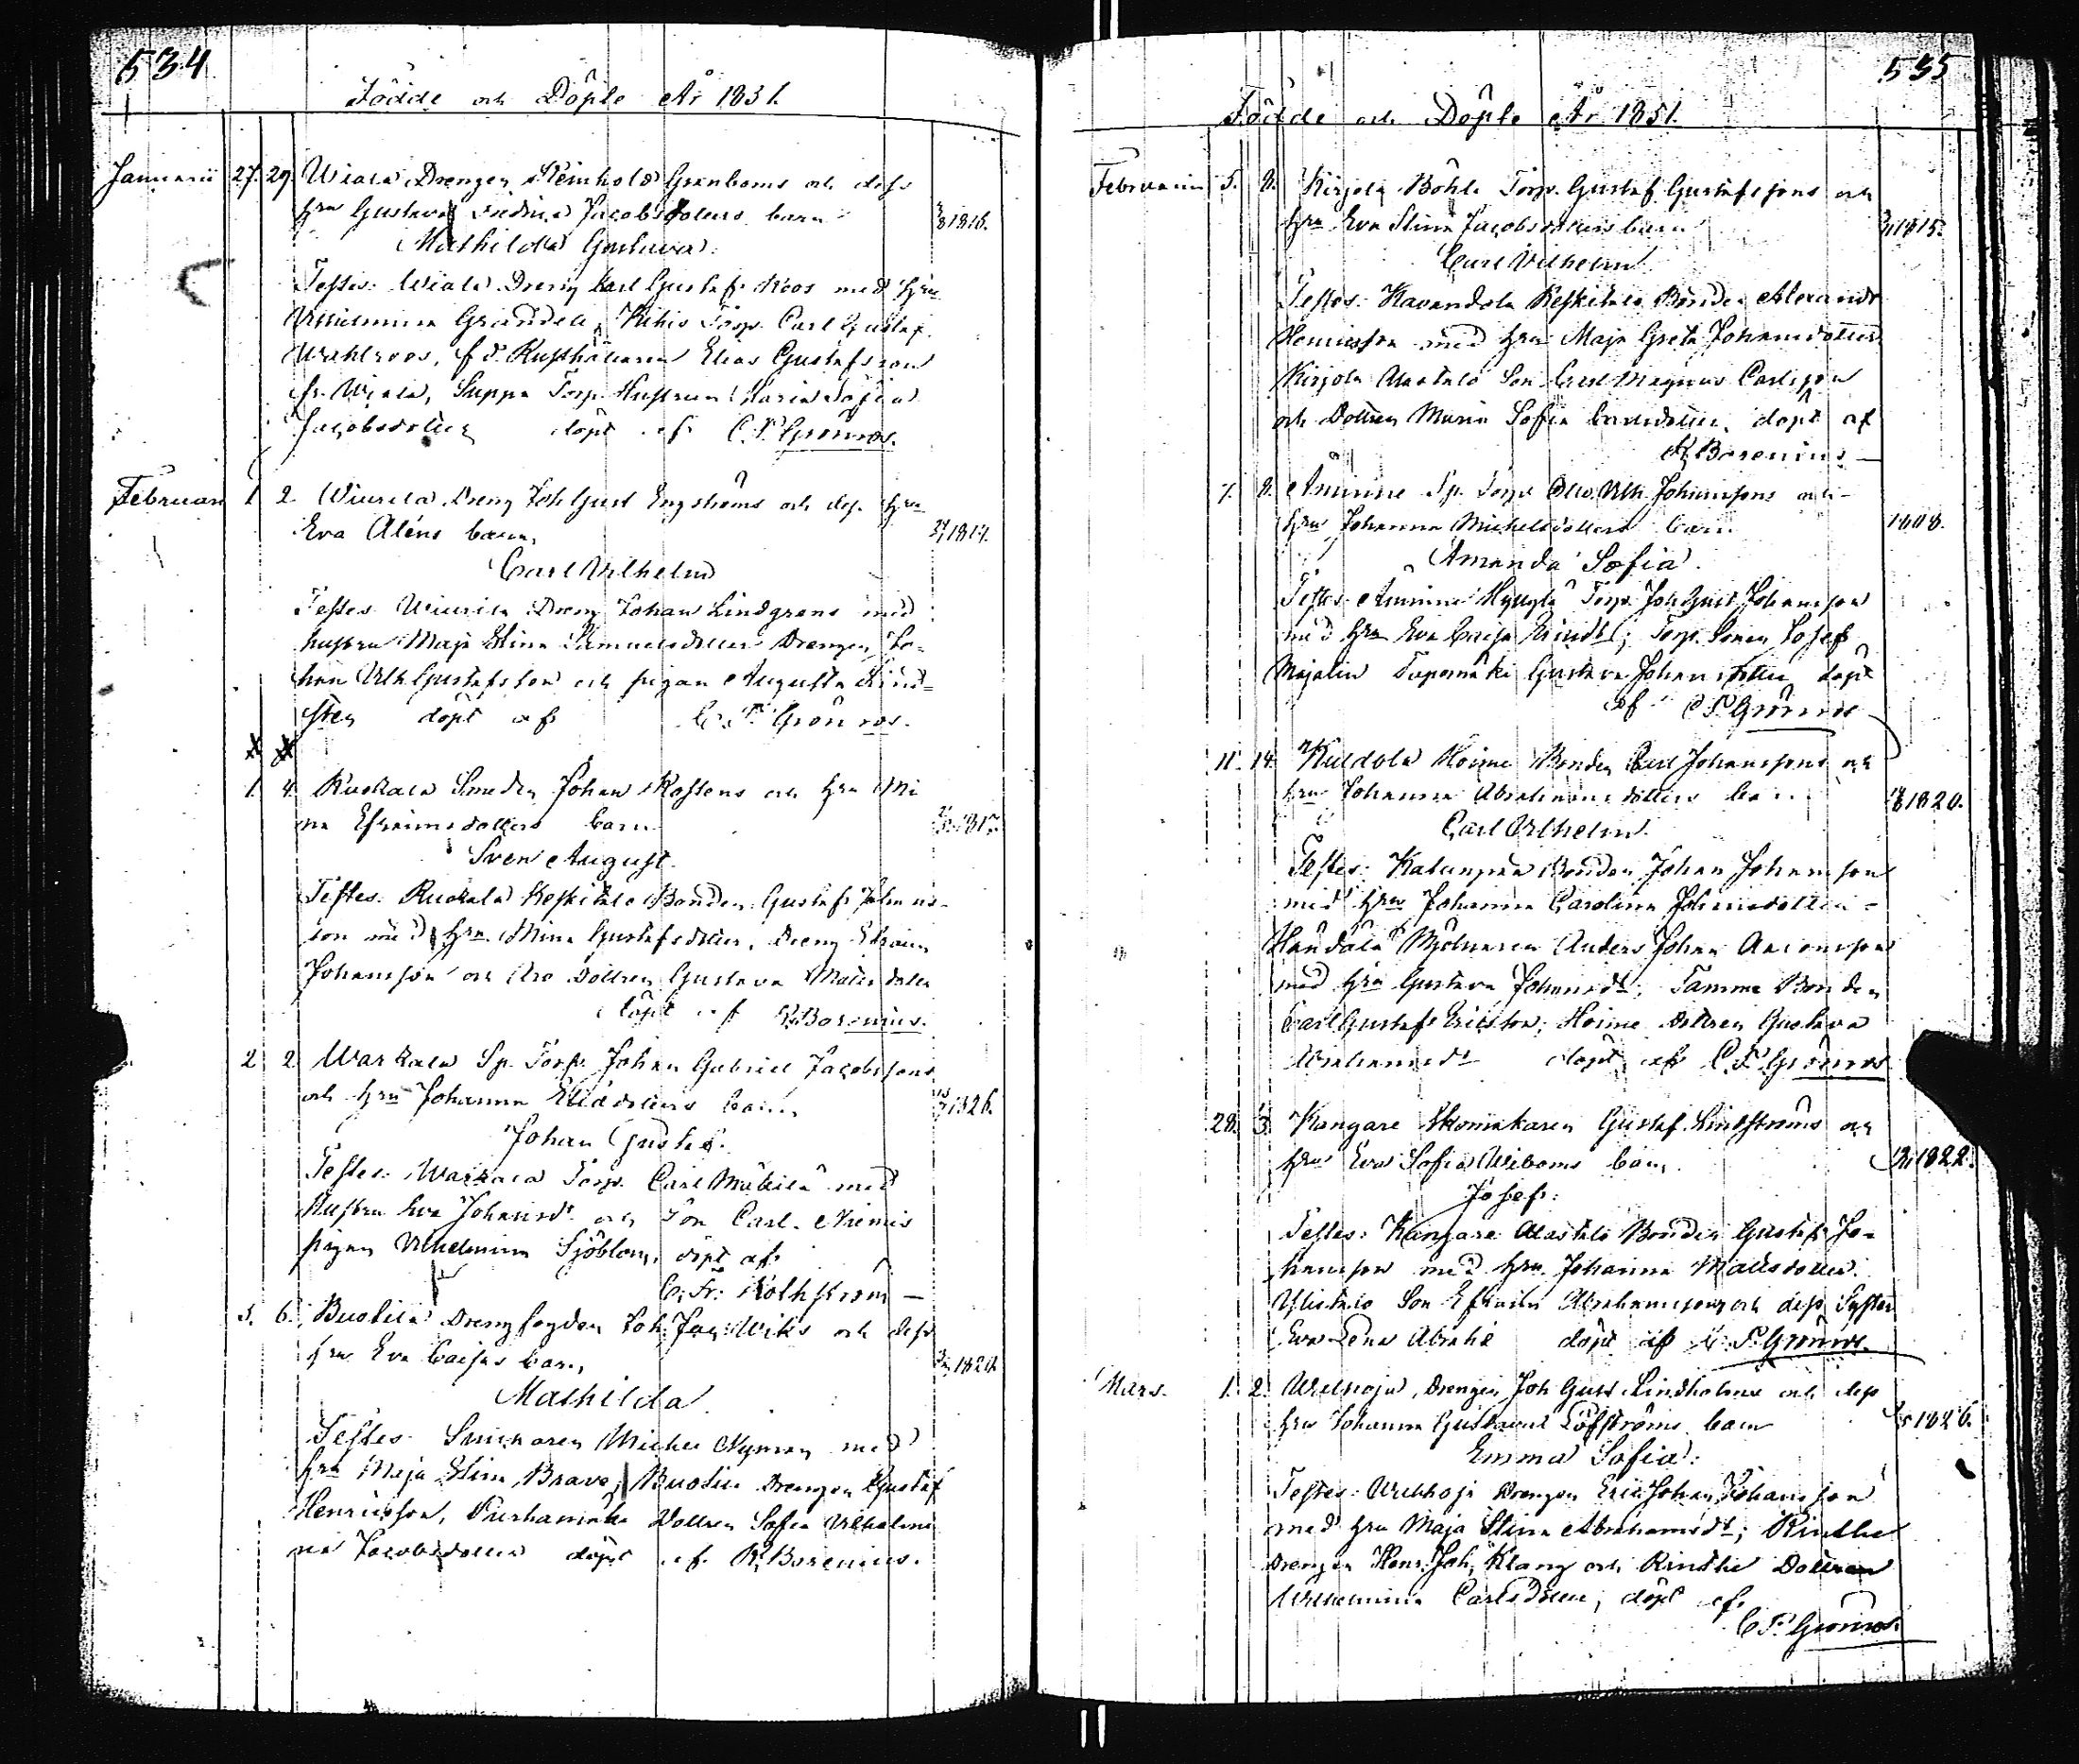 534
Födde och Döpte År 1851.
Januarii 27. 29. Wiala Drengen Reinhold Grönboms och dess
hru Gustava Fredrica Jacobsdotters barn 1816.
Mathilda Gustava.
Testes: Wiala Dreng Karl Gustaf Roos med hru
Vilhelmina Grandell, Torp. Carl Gustaf
Wahlroos, f.d. Rusthållaren Elias Gustafsson
fr. Wiala, Suppa Torp. Hustrun Maria Sofia
Jacobsdotter döpt af C.F. Grönroos.
Februari 1 2. Wiurila Dreng Joh Gust Engströms och des hru
Eva Aléns barn, 1814.
Carl Vilhelm
Testes Wiurila Dreng Johan Lindgrens med
hustru Maja Stina Samuelsdotter Drengen Jo-
han Vilh Gustafsson och pigan Augusta Lind-
sten döpt af C.F. Grönroos.
1. 4. Ruokala Smeden Johan Rostens och hru Mi
na Efraimsdotters barn 1817.
Sven August.
Testes. Ruokala Keskitalo Bonden Gustaf Johans-
son med hru Mina Gustafsdotter, Dreng Efraim
Johansson och Dottren Gustava Matsdotter
döpt af R. Borenius.
2 2 Warkala Sp. Torp. Johan Gabriel Jacobssons
och hru Johanna Eliædotters barn, 1826.
Johan Gustaf.
Testes: Warkala Torp. Carl Mäkilä med
Hustru Eva Johansdt och Son Carl. Niemis
pigan Vilhelmina Sjöblom, döpt af
C. Fr. Rothström
5. 6. Buotila Drengfogden Joh: Jac: Wiks och dess
hru Eva Caisas barn, 1820.
Mathilda
Testes Snickaren Michel Nyman med
hru Maja Stina Brave, Buotila Drengen Gustaf
Henricsson, Purhamäki Dottren Sofia Vilhelmi
na Jacobsdotter döpt af R. Borenius.
535
Födde och Döpte År 1851.
Februarii 5. 8. Kirjola Böhle Torp. Gustaf Gustafssons och
hru Eva Stina Jacobsdotters barn 1815.
Carl Vilhelm
Testes: Kavandola Keskitalo Bonden Alexander
Henricsson med hru Maja Greta Johansdotter
Kirjola Alastalo Son Carl Magnus Carlsson
och Dottren Maria Sofia Carlsdotter, döpt af
R. Borenius
7. 8. Åminne Sp. Torp. Vilh. Johanssons och
hru Johanna Michelsdotters barn 1808.
Amanda Sofia.
Testes: Åminne Torp. Joh Gust Johansson
med hru Eva Caisa; Torp. Sonen Josef
Majalin Gustava Johansdotter döpt
af C.F. Grönroos
11. 14. Kuldola Hoime Bonden Carl Johanssons och
hru Johanna Abrahamsdotters barn 1820.
Carl Vilhelm.
Testes: Katunpää Bonden Johan Johansson
med hru Johanna Carolina Johansdotter
Mjölnaren Anders Johan Aaronsson
med hru Gustava Johansdt; Tamme Bonden
Carl Gustaf Ericsson; Hoime Dottren Gustava
Abrahamsdt döpt af C.F. Grönroos
28. 3. Kangare Skomakaren Gustaf Lindströms och
hru Eva Sofia Weboms barn 1822.
Josef:
Testes: Kangare Alastalo Bonden Gustaf Jo-
hansson med hru Johanna Matsdotter.
Ylistalo Son Efraim Abrahamsson och dess Syster
Eva Lena Abrahé döpt af C.F. Grönroos.
Mars. 1. 2. Welhoja, Drengen Joh Gust Lindholms och dess
hru Johanna Gustavas Löfströms barn 1826.
Emma Sofia:
Testes: Welhoja Drengen Eric Johan Johansson
med hru Maja Stina Abrahamsdt; Rinthe
Drengen Henr. Joh. Klang och Rinthe Dottren
Vilhelmina Carlsdotter, döpt af
C.F. Grönroos.